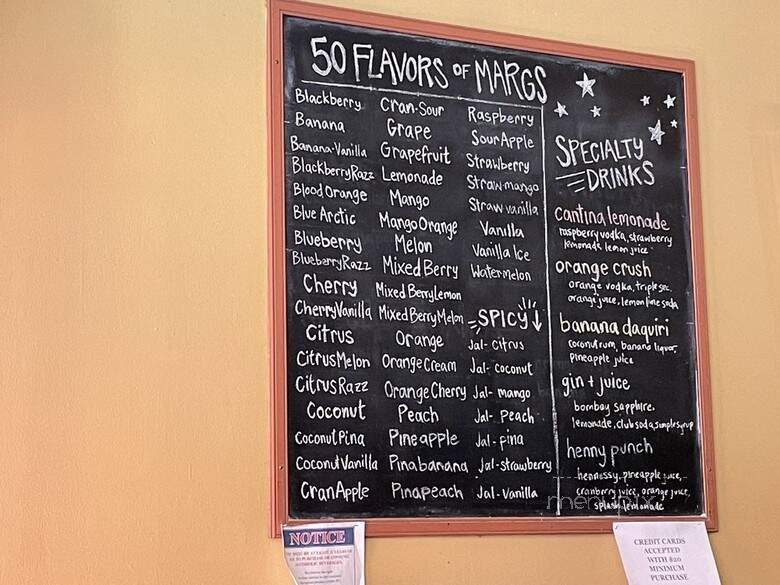 50 FLAVORS OF MARGS
Blackberry
Banana
Banana-Vanilla
BlackberryRazz
Blood Orange
Blue Arctic
Blueberry
BlueberryRazz
Cherry
CherryVanilla
Citrus
CitrusMelon
CitrusRazz
Coconut
CoconutPina
CoconutVanilla
CranApple
Cran-Sour
Grape
Grapefruit
Lemonade
Mango
MangoOrange
Melon
MixedBerry
MixedBerryLemon
MixedBerryMelon
Orange
OrangeCream
OrangeCherry
Peach
Pineapple
Pinabanana
Pinapeach
Raspberry
SourApple
Strawberry
Straw-mango
Straw vanilla
Vanilla
Vanilla Ice
Watermelon
SPICY
Jal-citrus
Jal-coconut
Jal-mango
Jal-peach
Jal-pina
Jal-strawberry
Jal-vanilla
SPECIALTY
DRINKS
cantina lemonade
raspberry vodka, strawberry
lemonade lemon juice
orange crush
orange vodka, triple sec,
orange juice, lemon lime soda
banana daquiri
coconut rum, banana liquor,
pineapple juice
gin + juice
bombay sapphire,
lemonade, club soda, simple syrup
henny punch
hennessy, pineapple juice,
cranberry juice, orange juice,
splash lemonade
menupix
NOTICE
CREDIT CARDS
ACCEPTED
WITH $20
MINIMUM
PURCHASE